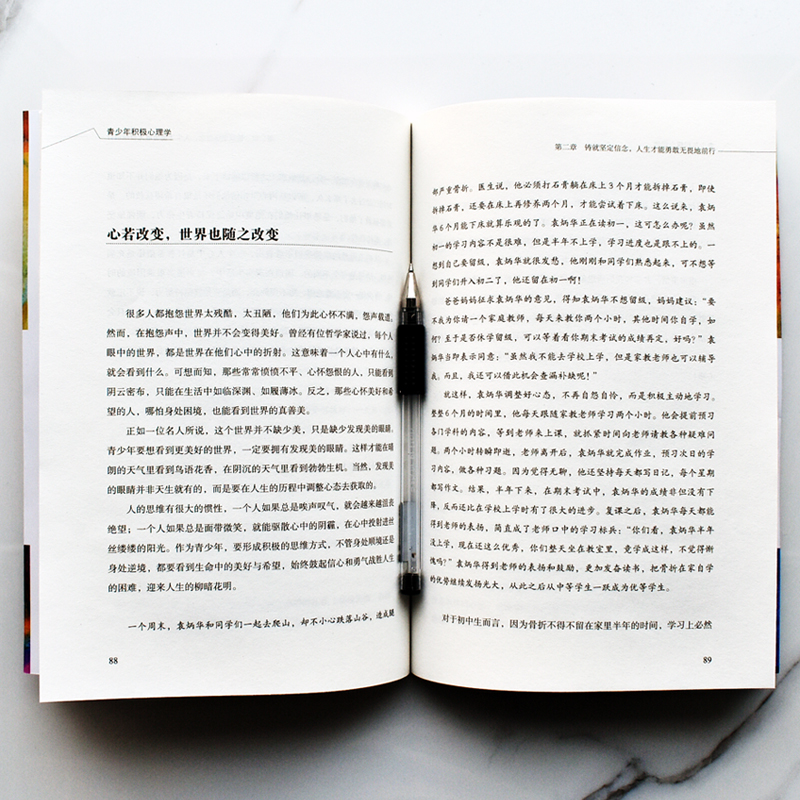 青少年积极心理学
心若改变，世界也随之改变
很多人都抱怨世界太残酷，太丑陋，他们为此心怀不满，怨声载道。
然而，在抱怨声中，世界并不会变得美好。曾经有位哲学家说过，每个人
眼中的世界，都是世界在他们心中的折射。这意味着一个人心中有什么，
就会看到什么。可想而知，那些常常愤愤不平、心怀怨恨的人，只能看到
阴云密布，只能在生活中如临深渊、如履薄冰。反之，那些心怀美好和希
望的人，哪怕身处困境，也能看到世界的真善美。
正如一位名人所说，这个世界并不缺少美，只是缺少发现美的眼睛。
青少年要想看到更美好的世界，一定要拥有发现美的眼睛。这样才能在晴
朗的天气里看到鸟语花香，在阴沉的天气里看到勃勃生机。当然，发现美
的眼睛并非天生就有的，而是要在人生的历程中调整心态去获取的。
人的思维有很大的惯性，一个人如果总是唉声叹气，就会越来越沮丧
绝望；一个人如果总是面带微笑，就能驱散心中的阴霾，在心中投射进丝
丝缕缕的阳光。作为青少年，要形成积极的思维方式，不管身处顺境还是
身处逆境，都要看到生命中的美好与希望，始终鼓起信心和勇气战胜人生
的困难，迎来人生的柳暗花明。
一个周末，袁炳华和同学们一起去爬山，却不小心跌落山谷，造成腿
88
第二章 铸就坚定信念，人生才能勇敢无畏地前行
部严重骨折。医生说，他必须打石膏躺在床上3个月才能拆掉石膏，即使
拆掉石膏，还要在床上再修养两个月，才能尝试着下床。这么说来，袁
炳华6个月能下床就算乐观的了。袁炳华正在读初一，这可怎么办呢？虽然
初一的学习内容不是很难，但是半年不上学，学习进度也是跟不上的。一
想到自己要留级，袁炳华就很发愁，他刚刚和同学们熟悉起来，可不想等
到同学们升入初二了，他还留在初一啊！
爸爸妈妈征求袁炳华的意见，得知袁炳华不想留级，妈妈建议：“要
不我为你请一个家庭教师，每天来教你两个小时，其他时间你自学，如
何？至于是否休学留级，可以等着看你期末考试的成绩再定，好吗？”袁炳
华当即表示同意：“虽然我不能去学校上学，但是家教老师也可以辅导
我。而且，我还可以借此机会查漏补缺呢！”
就这样，袁炳华调整好心态，不再自怨自怜，而是积极主动地学习。
整整6个月的时间里，他每天跟随家教老师学习两个小时。他会提前预习
各门学科的内容，等到老师来上课，就抓紧时间向老师请教各种疑难问
题。两个小时转瞬即逝，老师离开后，袁炳华就完成作业，预习次日的学
习内容，做各种习题。因为觉得无聊，他还坚持每天都写日记，每个星期
都写作文。结果，半年下来，在期末考试中，袁炳华的成绩非但没有下
降，反而还比在学校上学时有了很大的进步。复课之后，袁炳华每天都能
得到老师的表扬，简直成了老师口中的学习标兵：“你们看，袁炳华半年
没上学，现在还这么优秀，你们整天坐在教室里，竟学成这样，不觉得惭
愧吗？”袁炳华得到老师的表扬和鼓励，更加发奋读书，把骨折在家自学
的优势继续发扬光大，从此之后从中等学生一跃成为优等生。
对于初中生而言，因为骨折不得不留在家里半年的时间，学习上必然
89